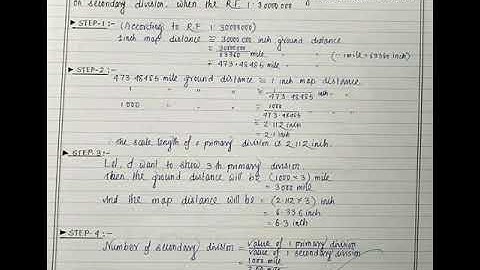 on secondary division, when the R.F 1:30000000
▶ STEP-1:- (According to R.F 1:30000000)
1 inch map distance = 30000000 inch ground distance
= 30000000
63360 mile (∵ 1 mile = 63360 inch)
= 473.48485 mile
▶ STEP-2:-
473.48485 mile ground distance = 1 inch map distance
1 " " " = 1
473.48485 inch " "
1000 " " " = 1000
473.48485 " " "
= 2.112 inch
= 2.1 inch
∴ the scale length of 1 primary division is 2.112 inch.
▶ STEP-3:-
Let, I want to show 3 th primary division.
then the ground distance will be (1000 × 3) mile
= 3000 mile
And the map distance will be = (2.112 × 3) inch
= 6.336 inch
= 6.3 inch
▶ STEP-4:-
Number of secondary division = value of 1 primary division
value of 1 secondary division
= 1000 mile